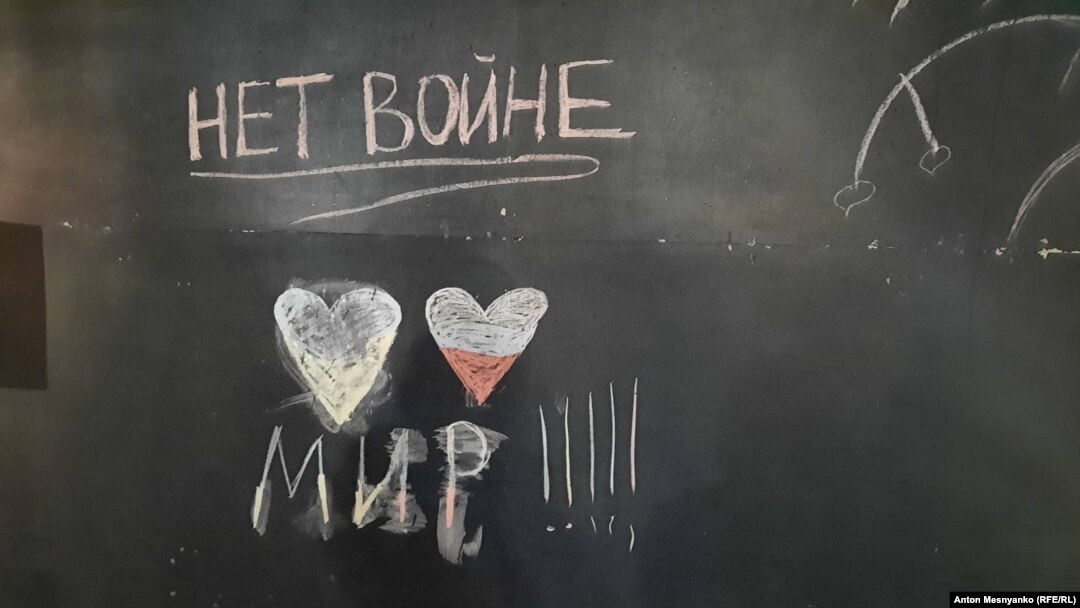 НЕТ ВОЙНЕ
МИР !!!!!
Anton Mesnyanko (RFE/RL)